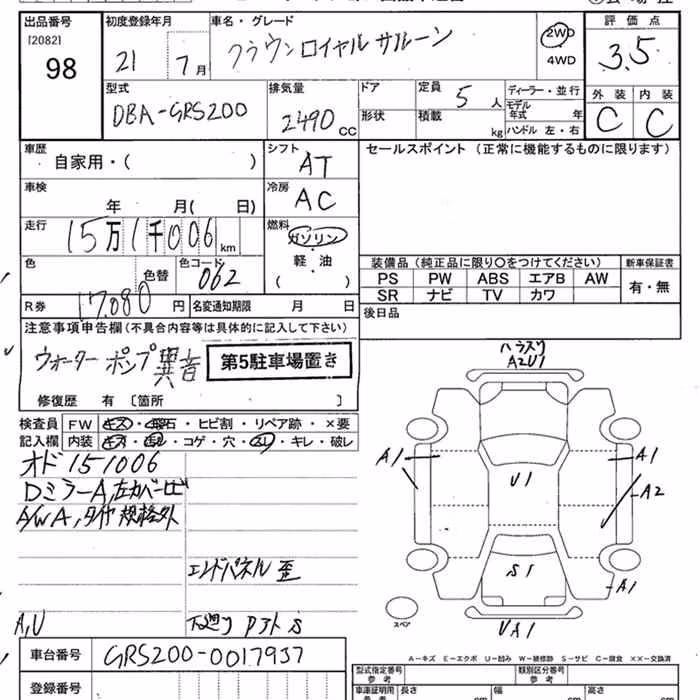 出品番号 初度登録年月 車名・グレード 評価点
[2082]
98 21 7月 クラウンロイヤルサルーン 2WD 3.5
4WD
型式 排気量 ドア 定員 ディーラー・並行 外装 内装
DBA-GRS200 2490cc 5人 モデル年式 年 C C
形状 積載 kg ハンドル 左・右
車歴 シフト セールスポイント (正常に機能するものに限ります)
自家用・( ) AT
車検 冷房
年 月( 日) AC
走行 燃料
15万1千006km ガソリン
軽・油
( )
色 色替 色コード 装備品 (純正品に限り○をつけてください) 新車保証書
062 PS PW ABS エアB AW 有・無
SR ナビ TV カワ
R券 17,080円 名変通知期限 月 日 後日品
注意事項申告欄(不具合内容等は具体的に記入して下さい)
ウォーターポンプ異音 第5駐車場置き
修復歴 有 〔箇所 〕
検査員 FW キズ・飛石・ヒビ割・リペア跡・×要
記入欄 内装 キズ・コゲ・穴・スレ・キレ・破レ
オド151006
DミラーA,左カバーヒビ
A/WA,タイヤ規格外
エンドパネル歪
A,U 下廻り S
A2U1
A1 A1
A2
U1
S1
A1
UA1
スペア
A-キズ E-エクボ U-凹み W-補修跡 S-サビ C-腐食 XX-交換済
車台番号 GRS200-0017937
登録番号
型式指定番号 参考 類別区分番号 参考
車庫証明用 長さ 幅 高さ